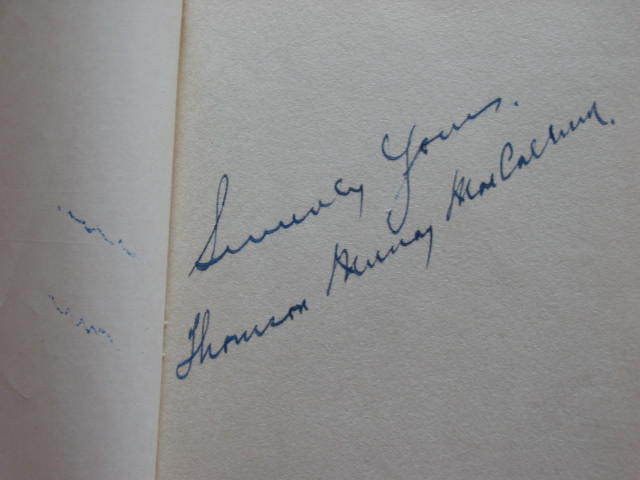 Sincerely Yours.
Thomson Murray MacCallum.